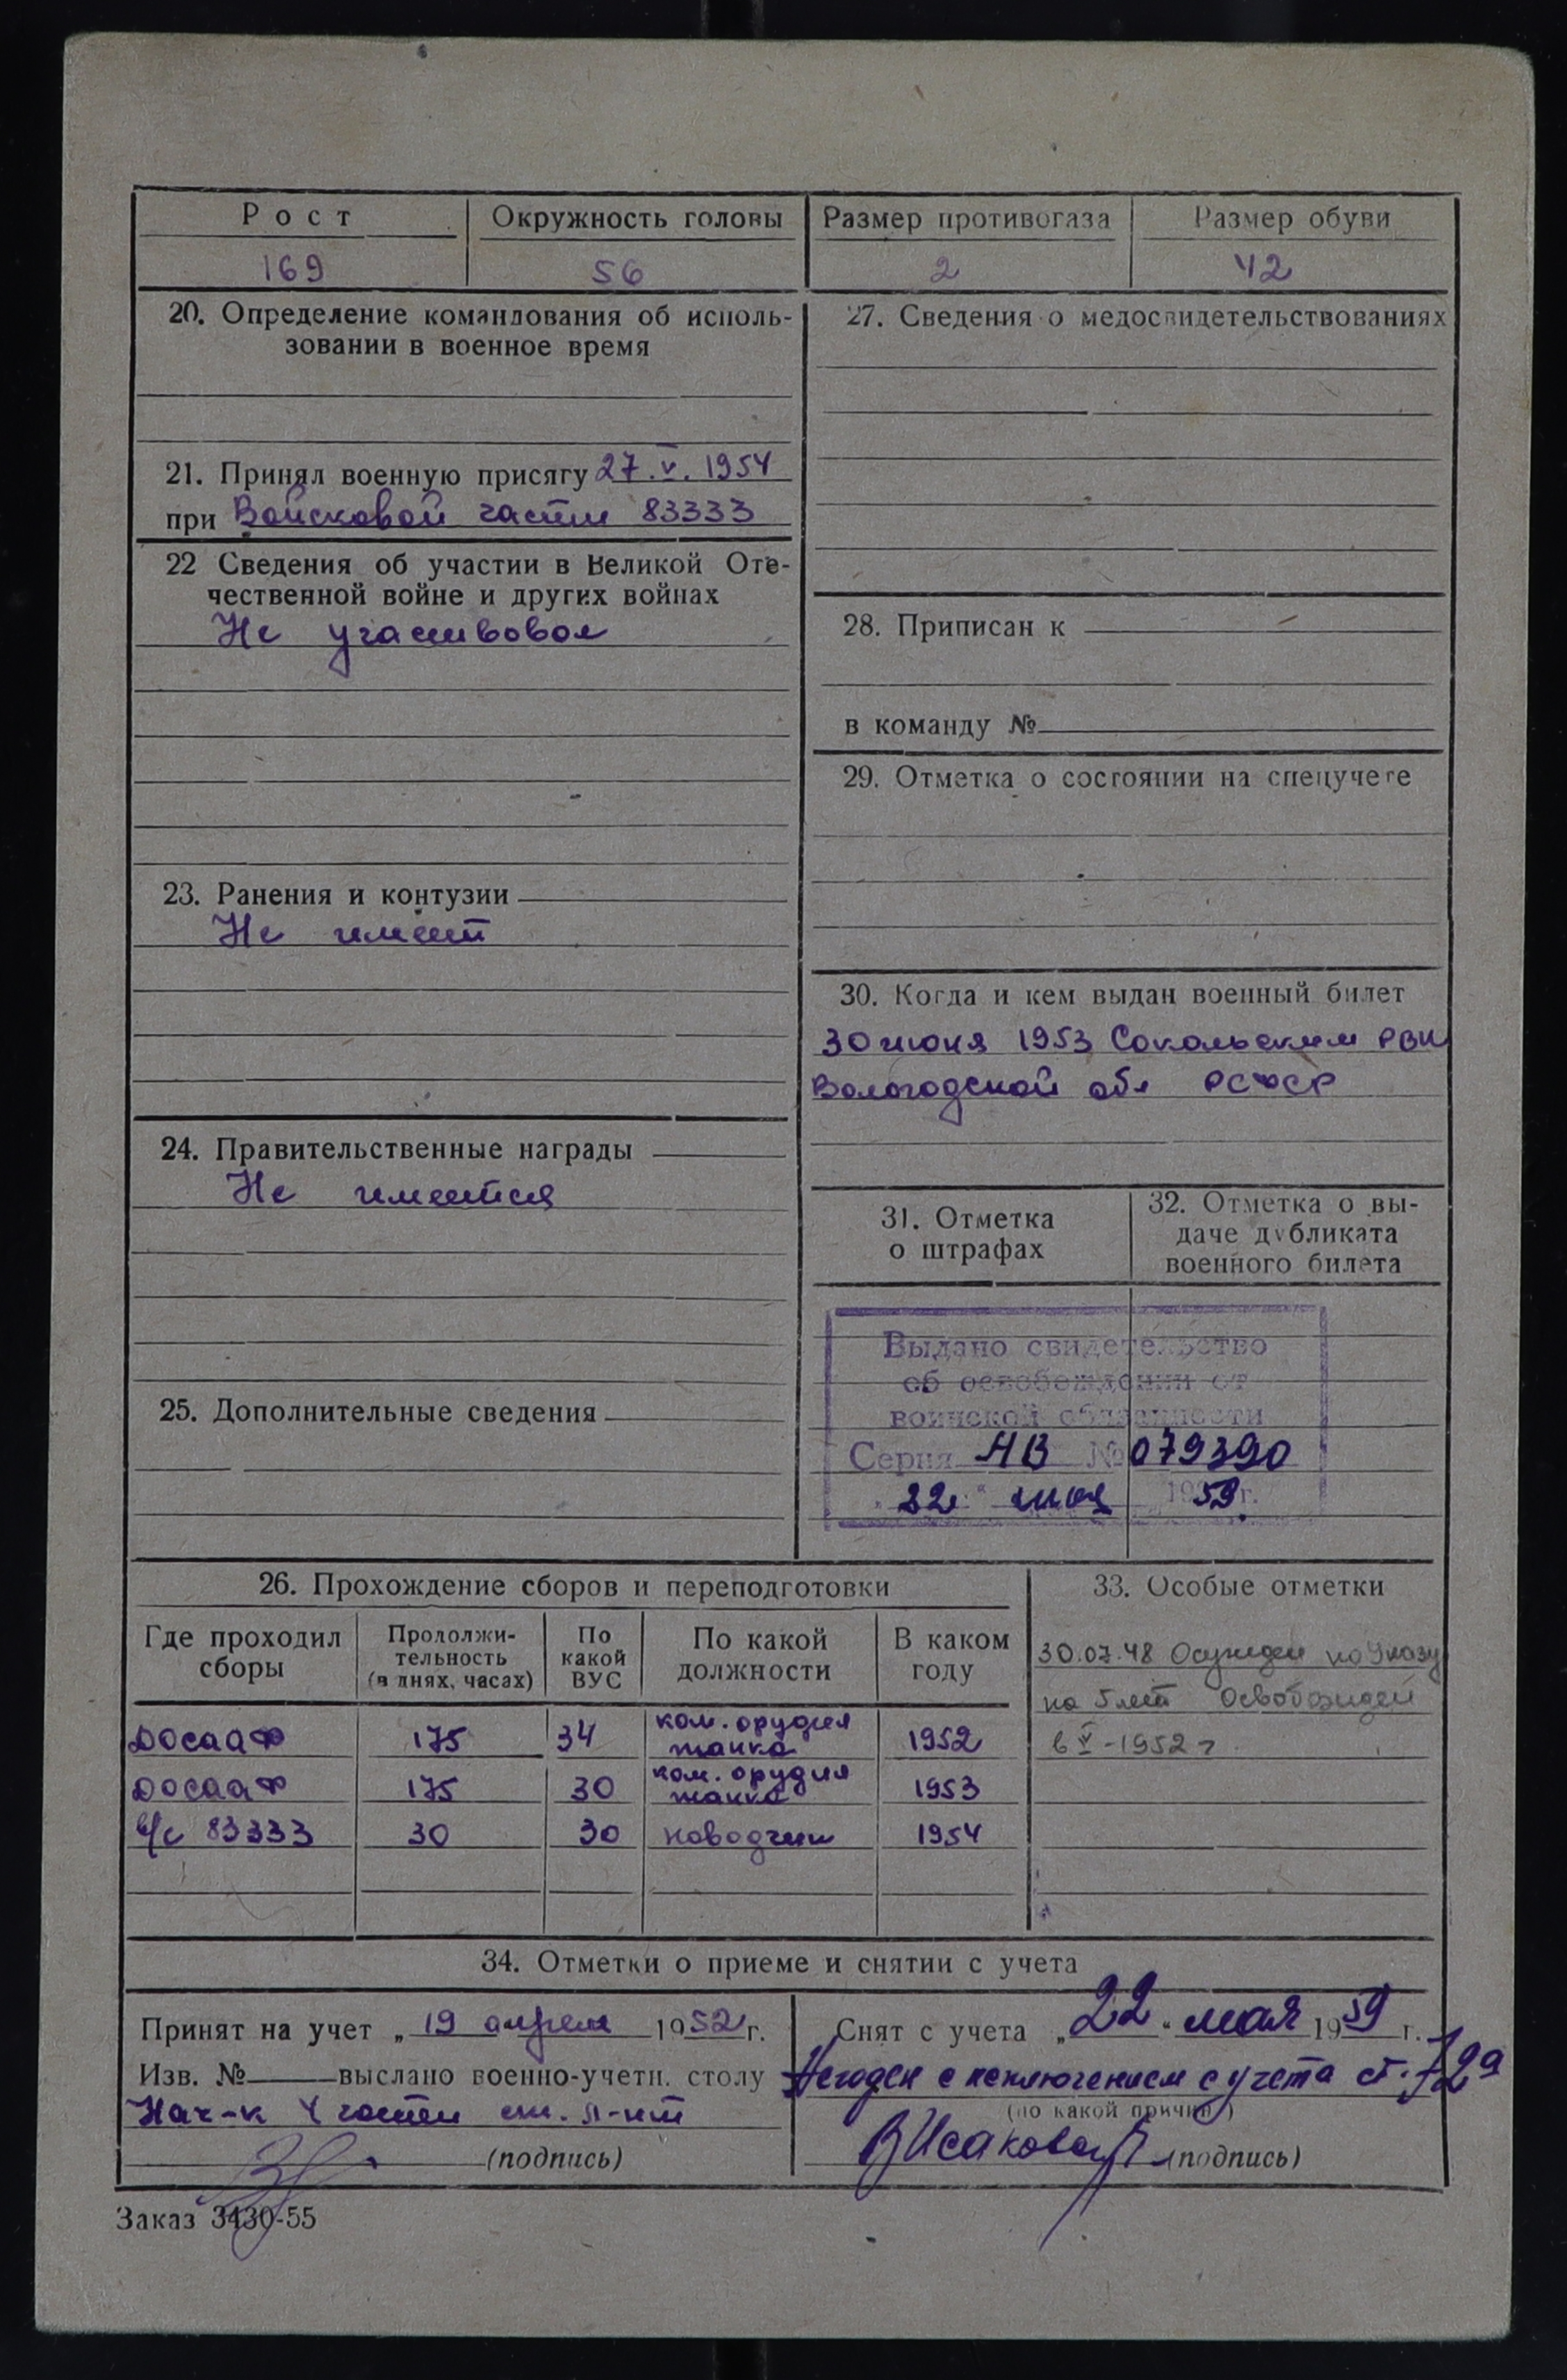 Рост Окружность головы Размер противогаза Размер обуви
169 56 2 42
20. Определение командования об исполь-
зовании в военное время
21. Принял военную присягу 27.V.1954
при Войсковой части 83333
22 Сведения об участии в Великой Оте-
чественной войне и других войнах
Не участвовал
23. Ранения и контузии
Не имеет
24. Правительственные награды
Не имеется
25. Дополнительные сведения
27. Сведения о медосвидетельствованиях
28. Приписан к
в команду №
29. Отметка о состоянии на спецучете
30. Когда и кем выдан военный билет
30 июня 1953 Сокольским РВК
Вологодской обл РСФСР
31. Отметка
о штрафах
32. Отметка о вы-
даче дубликата
военного билета
Выдано свидетельство
об освобождении от
воинской обязанности
Серия АВ № 079390
„22“ мая 1959 г.
26. Прохождение сборов и переподготовки
Где проходил
сборы
Продолжи-
тельность
(в днях, часах)
По
какой
ВУС
По какой
должности
В каком
году
ДОСААФ 175 34 ком. орудия танка 1952
ДОСААФ 175 30 ком. орудия танка 1953
в/ч 83333 30 30 наводчик 1954
33. Особые отметки
30.07.48 Осужден по Указу
на 5 лет Освобожден
в V-1952 г
34. Отметки о приеме и снятии с учета
Принят на учет „19 апреля 1952 г.
Изв. № выслано военно-учетн. столу
Нач-к 4 части ст. л-нт
(подпись)
Снят с учета „22“ мая 1959 г.
Негоден с исключением с учета ст. 72а
(по какой причине)
В Исакова (подпись)
Заказ 3430-55